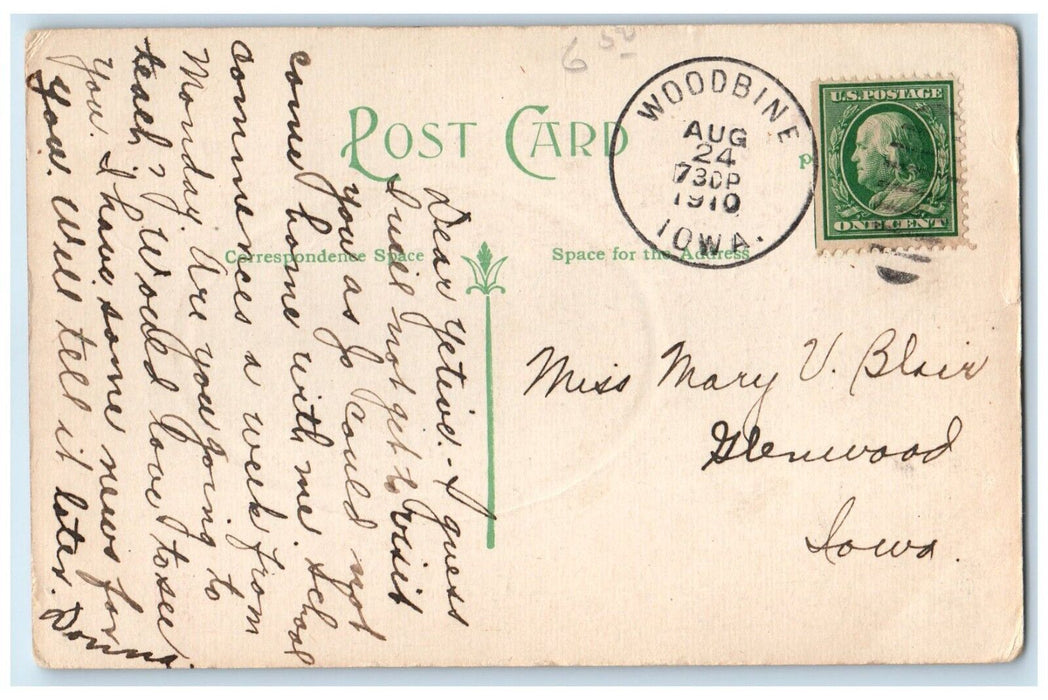 6 50
POST CARD
WOODBINE
AUG
24
730P
1910
IOWA.
U.S. POSTAGE
ONE CENT
Correspondence Space
Space for the Address
Dear Yetive. I guess
I will not get to visit
you as Jo could not
come home with me. School
commences a week from
Monday. Are you going to
teach? Would love to see
you. I have some news for
you. Will tell it later. Donna.
Miss Mary V. Blair
Glenwood
Iowa.